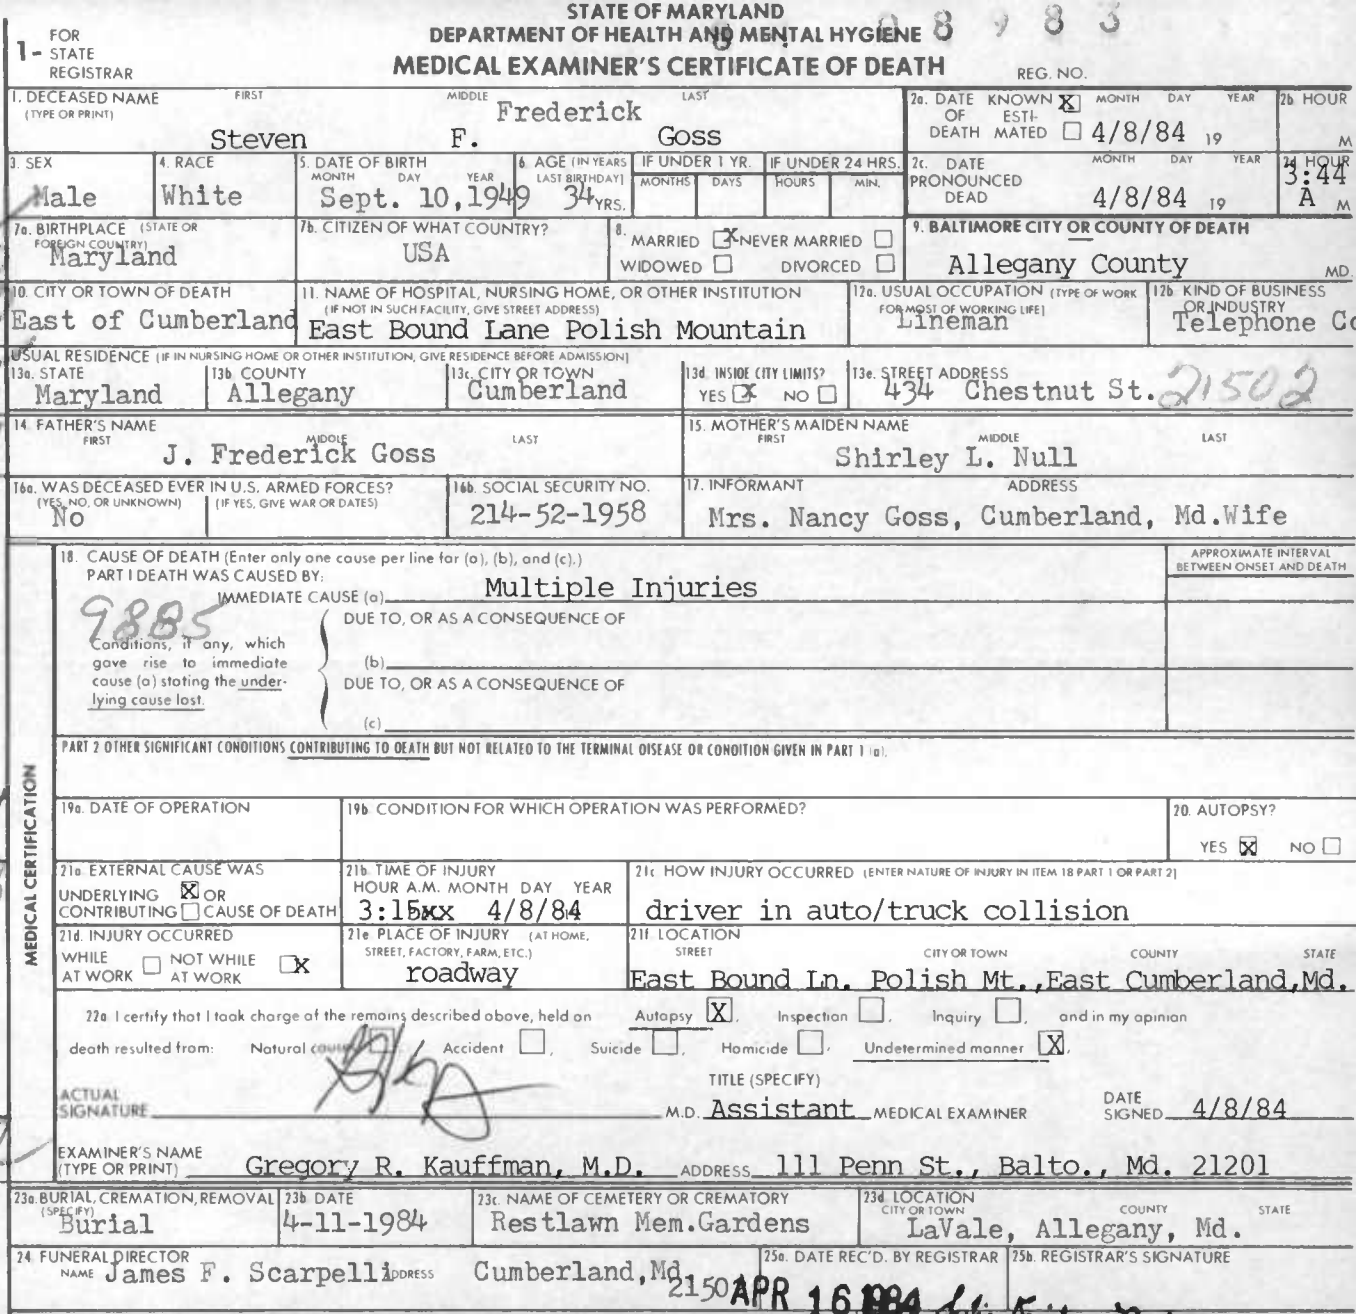 STATE OF MARYLAND
DEPARTMENT OF HEALTH AND MENTAL HYGIENE 8 8983
MEDICAL EXAMINER'S CERTIFICATE OF DEATH
REG. NO.
1- FOR
STATE
REGISTRAR
1. DECEASED NAME FIRST MIDDLE LAST
(TYPE OR PRINT) Frederick
Steven F. Goss
2a. DATE KNOWN X MONTH DAY YEAR
OF ESTI-
DEATH MATED 4/8/84 19
2b HOUR
M
3. SEX
Male
4. RACE
White
5. DATE OF BIRTH
MONTH DAY YEAR
Sept. 10,1949
6. AGE (IN YEARS
LAST BIRTHDAY)
34 YRS.
IF UNDER 1 YR.
MONTHS DAYS
IF UNDER 24 HRS.
HOURS MIN.
2c. DATE MONTH DAY YEAR
PRONOUNCED
DEAD 4/8/84 19
2d HOUR
3:44
A M
7a. BIRTHPLACE (STATE OR
FOREIGN COUNTRY)
Maryland
7b. CITIZEN OF WHAT COUNTRY?
USA
8. MARRIED X NEVER MARRIED
WIDOWED DIVORCED
9. BALTIMORE CITY OR COUNTY OF DEATH
Allegany County MD.
10. CITY OR TOWN OF DEATH
East of Cumberland
11. NAME OF HOSPITAL, NURSING HOME, OR OTHER INSTITUTION
(IF NOT IN SUCH FACILITY, GIVE STREET ADDRESS)
East Bound Lane Polish Mountain
12a. USUAL OCCUPATION (TYPE OF WORK
FOR MOST OF WORKING LIFE)
Lineman
12b. KIND OF BUSINESS
OR INDUSTRY
Telephone Co
USUAL RESIDENCE (IF IN NURSING HOME OR OTHER INSTITUTION, GIVE RESIDENCE BEFORE ADMISSION)
13a. STATE
Maryland
13b COUNTY
Allegany
13c. CITY OR TOWN
Cumberland
13d. INSIDE CITY LIMITS?
YES X NO
13e. STREET ADDRESS
434 Chestnut St. 21502
14. FATHER'S NAME
FIRST MIDDLE LAST
J. Frederick Goss
15. MOTHER'S MAIDEN NAME
FIRST MIDDLE LAST
Shirley L. Null
16a. WAS DECEASED EVER IN U.S. ARMED FORCES?
(YES, NO, OR UNKNOWN) (IF YES, GIVE WAR OR DATES)
No
16b. SOCIAL SECURITY NO.
214-52-1958
17. INFORMANT ADDRESS
Mrs. Nancy Goss, Cumberland, Md.Wife
MEDICAL CERTIFICATION
18. CAUSE OF DEATH (Enter only one cause per line for (a), (b), and (c).)
PART I DEATH WAS CAUSED BY:
IMMEDIATE CAUSE (a) Multiple Injuries
APPROXIMATE INTERVAL
BETWEEN ONSET AND DEATH
9885
DUE TO, OR AS A CONSEQUENCE OF
Conditions, if any, which
gave rise to immediate
cause (a) stating the under-
lying cause last.
(b)
DUE TO, OR AS A CONSEQUENCE OF
(c)
PART 2 OTHER SIGNIFICANT CONDITIONS CONTRIBUTING TO DEATH BUT NOT RELATED TO THE TERMINAL DISEASE OR CONDITION GIVEN IN PART 1 (a).
19a. DATE OF OPERATION
19b CONDITION FOR WHICH OPERATION WAS PERFORMED?
20. AUTOPSY?
YES X NO
21a EXTERNAL CAUSE WAS
UNDERLYING X OR
CONTRIBUTING CAUSE OF DEATH
21b TIME OF INJURY
HOUR A.M. MONTH DAY YEAR
3:15xx 4/8/84
21c HOW INJURY OCCURRED (ENTER NATURE OF INJURY IN ITEM 18 PART 1 OR PART 2)
driver in auto/truck collision
21d. INJURY OCCURRED
WHILE NOT WHILE
AT WORK AT WORK X
21e PLACE OF INJURY (AT HOME,
STREET, FACTORY, FARM, ETC.)
roadway
21f LOCATION
STREET CITY OR TOWN COUNTY STATE
East Bound Ln. Polish Mt.,East Cumberland,Md.
22a I certify that I took charge of the remains described above, held an Autopsy X, Inspection , Inquiry , and in my opinion
death resulted from: Natural causes Accident , Suicide , Homicide , Undetermined manner X,
ACTUAL
SIGNATURE
TITLE (SPECIFY)
M.D. Assistant MEDICAL EXAMINER
DATE
SIGNED 4/8/84
EXAMINER'S NAME
(TYPE OR PRINT) Gregory R. Kauffman, M.D. ADDRESS 111 Penn St., Balto., Md. 21201
23a. BURIAL, CREMATION, REMOVAL
(SPECIFY)
Burial
23b DATE
4-11-1984
23c. NAME OF CEMETERY OR CREMATORY
Restlawn Mem.Gardens
23d LOCATION
CITY OR TOWN COUNTY STATE
LaVale, Allegany, Md.
24 FUNERAL DIRECTOR
NAME James F. Scarpelli ADDRESS Cumberland,Md
2150
25a. DATE REC'D. BY REGISTRAR
APR 16 1984
25b. REGISTRAR'S SIGNATURE